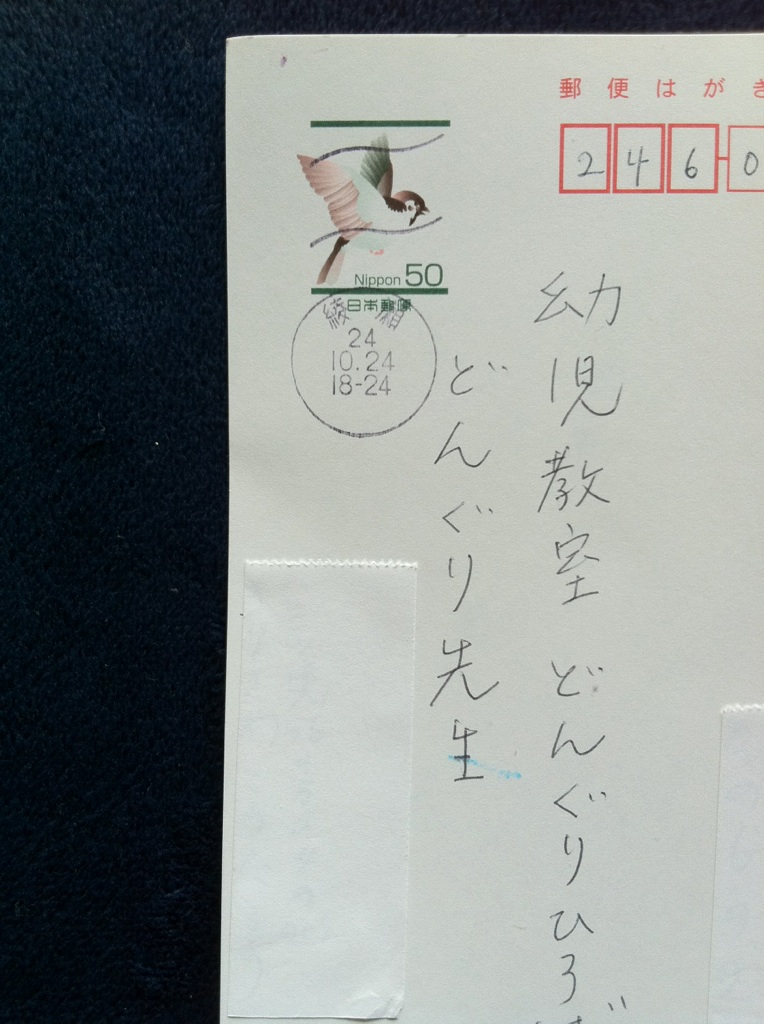 郵便はがき
246-0
Nippon 50
日本郵便
綾瀬
24
10.24
18-24
幼児教室 どんぐりひろば
どんぐり先生